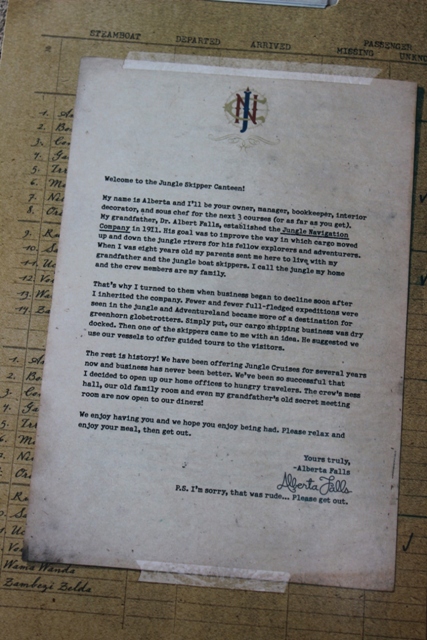 STEAMBOAT DEPARTED ARRIVED PASSENGER
MISSING
JNC
Welcome to the Jungle Skipper Canteen!
My name is Alberta and I'll be your owner, manager, bookkeeper, interior
decorator, and sous chef for the next 3 courses (or as far as you get).
My grandfather, Dr. Albert Falls, established the Jungle Navigation
Company in 1911. His goal was to improve the way in which cargo moved
up and down the jungle rivers for his fellow explorers and adventurers.
When I was eight years old my parents sent me here to live with my
grandfather and the jungle boat skippers. I call the jungle my home
and the crew members are my family.
That's why I turned to them when business began to decline soon after
I inherited the company. Fewer and fewer full-fledged expeditions were
seen in the jungle and Adventureland became more of a destination for
greenhorn globetrotters. Simply put, our cargo shipping business was dry
docked. Then one of the skippers came to me with an idea. He suggested we
use our vessels to offer guided tours to the visitors.
The rest is history! We have been offering Jungle Cruises for several years
now and business has never been better. We've been so successful that
I decided to open up our home offices to hungry travelers. The crew's mess
hall, our old family room and even my grandfather's old secret meeting
room are now open to our diners!
We enjoy having you and we hope you enjoy being had. Please relax and
enjoy your meal, then get out.
Yours truly,
-Alberta Falls
Alberta Falls
P.S. I'm sorry, that was rude... Please get out.
Wamba Wanda
Zambezi Zelda